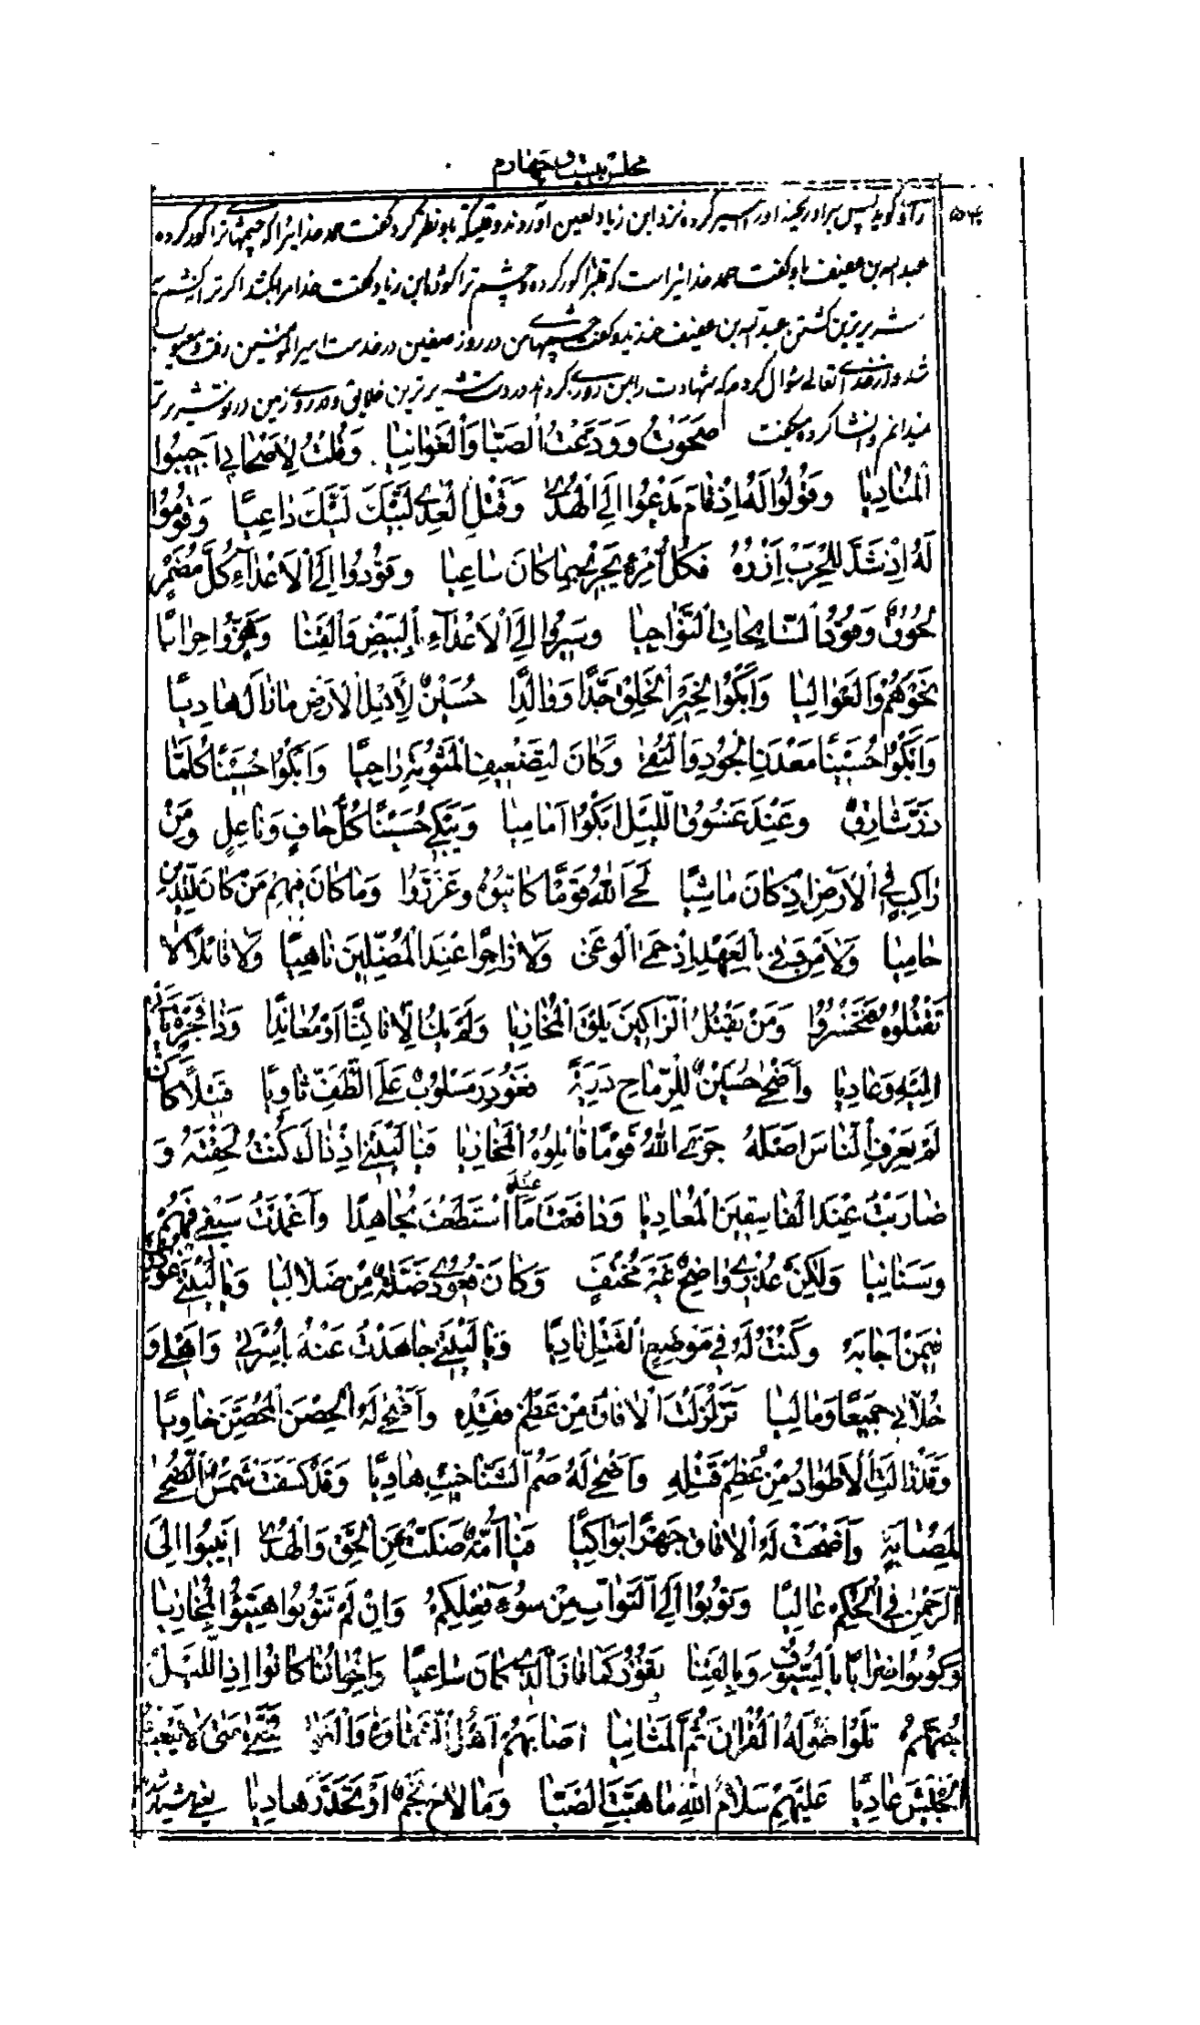 مجلس بیست و چهارم
راوی گوید پس بر او ریخته او را اسیر کرده نزد ابن زیاد لعین آوردند وقتیکه باو نظر کرد گفت حمد خدایرا که چشمهای ترا کور کرده
عبد الله بن عفیف باو گفت حمد خدایراست که قلب ترا کور کرده و چشم ترا ابن زیاد گفت خدا مرا بکشد اگر ترا نکشم
شریرترین کشتن عبد الله بن عفیف خندید و گفت چشمهای من در روز صفین در خدمت امیر المؤمنین رفت و معیوب
شد و از خدای تعالی سؤال کردم که شهادت را من روزی کرداند در دست شریرترین خلایق و در روی زمین از تو شریرتر
نمیدانم و انشا کرده میگفت صَحَوْتُ وَوَدَّعْتُ الصَّبَا وَالْغَوَانِيَا وَقُلْتُ لِأَصْحَابِي أَجِيبُوا
الْمُنَادِيَا وَقُولُوا لَهُ إِذْ قَامَ يَدْعُوا إِلَى الْهُدَى وَقَتْلِ الْعِدَى لَبَّيْكَ لَبَّيْكَ دَاعِيًا وَقُومُوا
لَهُ إِذْ شَدَّ لِلْحَرْبِ أَزْرَهُ فَكُلُّ امْرِءٍ يُجْزَى بِمَا كَانَ سَاعِيَا وَقُودُوا إِلَى الْأَعْدَاءِ كُلَّ مُضَمَّرٍ
لَحُوقٍ وَقُودُ السَّابِحَاتِ النَّوَاجِيَا وَسِيرُوا إِلَى الْأَعْدَاءِ بِالْبِيضِ وَالْقَنَا وَهُزُّوا حِرَابًا
نَحْوَهُمْ وَالْعَوَالِيَا وَابْكُوا لِخَيْرِ الْخَلْقِ جَدًّا وَوَالِدًا حُسَيْنٌ لِأَهْلِ الْأَرْضِ مَا زَالَ هَادِيًا
وَابْكُوا حُسَيْنًا مَعْدَنَ الْجُودِ وَالتُّقَى وَكَانَ لِتَضْعِيفِ الْمَثُوبَةِ رَاجِيًا وَابْكُوا حُسَيْنًا كُلَّمَا
ذَرَّ شَارِقٌ وَعِنْدَ غَسُوقِ اللَّيْلِ ابْكُوا إِمَامِيَا وَيَبْكِي حُسَيْنًا كُلُّ حَافٍ وَنَاعِلٍ وَمَنْ
رَاكِبٍ فِي الْأَرْضِ إِذْ كَانَ مَاشِيًا لَحَى اللهُ قَوْمًا كَاتَبُوهُ وَغَرَّرُوا وَمَا كَانَ فِيهِمْ مَنْ كَانَ لِلدِّينِ
حَامِيَا وَلَا مَنْ يَفِي بِالْعَهْدِ إِذْ حَمِيَ الْوَغَى وَلَا زَاجِرًا عِنْدَ الْمُضِلِّينَ نَاهِيًا وَلَا قَائِلًا لَا
تَقْتُلُوهُ فَتَخْسَرُوا وَمَنْ يَقْتُلِ الزَّاكِينَ يَلْقَ الْمَخَازِيَا وَلَمْ يَكُ إِلَّا نَاكِثًا أَوْ مُعَانِدًا وَذَا فَجْرَةٍ يَأْتِي
إِلَيْهِ وَعَادِيَا وَأَضْحَى حُسَيْنٌ لِلرِّمَاحِ دَرِيَّةً فَغُودِرَ مَسْلُوبٌ عَلَى الطَّفِّ ثَاوِيًا قَتِيلًا كَأَنْ
لَمْ يَعْرِفِ النَّاسَ أَصْلَهُ جَزَى اللهُ قَوْمًا قَاتَلُوهُ الْمَخَازِيَا فَيَا لَيْتَنِي إِذْ ذَاكَ كُنْتُ لَحِقْتُهُ وَ
ضَارَبْتُ عِنْدَ الْفَاسِقِينَ الْمُعَادِيَا وَدَافَعْتُ عَنْهُ مَا اسْتَطَعْتُ مُجَاهِدًا وَأَغْمَدْتُ سَيْفِي فِيهِمُ
وَسِنَانِيَا وَلَكِنَّ عُذْرِي وَاضِحٌ غَيْرُ مُخْتَفٍ وَكَانَ قُعُودِي ضَلَّةً مِنْ ضَلَالِيَا وَيَا لَيْتَنِي غُودِرْتُ
فِيمَنْ أَجَابَهُ وَكُنْتُ لَهُ فِي مَوْضِعِ الْقَتْلِ فَادِيًا وَيَا لَيْتَنِي جَاهَدْتُ عَنْهُ بِأُسْرَتِي وَأَهْلِي وَ
خُلَّانِي جَمِيعًا وَمَالِيَا تَزَلْزَلَتِ الْآفَاقُ مِنْ عُظْمِ فَقْدِهِ وَأَضْحَى لَهُ الْحِصْنُ الْمُحَصَّنُ خَاوِيًا
وَقَدْ زَالَتِ الْأَطْوَادُ مِنْ عُظْمِ قَتْلِهِ وَأَضْحَى لَهُ صُمُّ الشَّنَاخِيبِ هَادِيًا وَقَدْ كَسَفَتْ شَمْسُ الضُّحَى
لِمُصَابِهِ وَأَضْحَتْ لَهُ الْآفَاقُ جَهْرًا بَوَاكِيًا فَيَا أُمَّةً ضَلَّتْ عَنِ الْحَقِّ وَالْهُدَى أَنِيبُوا إِلَى
الرَّحْمٰنِ فِي الْحُكْمِ عَالِيًا وَتُوبُوا إِلَى التَّوَّابِ مِنْ سُوءِ فِعْلِكُمْ وَإِنْ لَمْ تَتُوبُوا الْمَخَازِيَا
وَكُونُوا ضِرَابًا بِالسُّيُوفِ وَبِالْقَنَا تَفُوزُوا كَمَا فَازَ الَّذِي كَانَ سَاعِيًا وَإِخْوَانُنَا كَانُوا إِذِ اللَّيْلُ
جُنَّهُمْ تَلَوْا طُولَهُ الْقُرْآنَ ثُمَّ الْمَثَانِيَا أَصَابَهُمْ أَهْلُ الشَّقَاوَةِ وَالْغَوَى فَحَتَّى مَتَى لَا يُبْعَثُ
الْجَيْشُ عَادِيًا عَلَيْهِمْ سَلَامُ اللهِ مَا هَبَّتِ الصَّبَا وَمَا لَاحَ نَجْمٌ أَوْ تَحَدَّرَ هَادِيًا یعنی